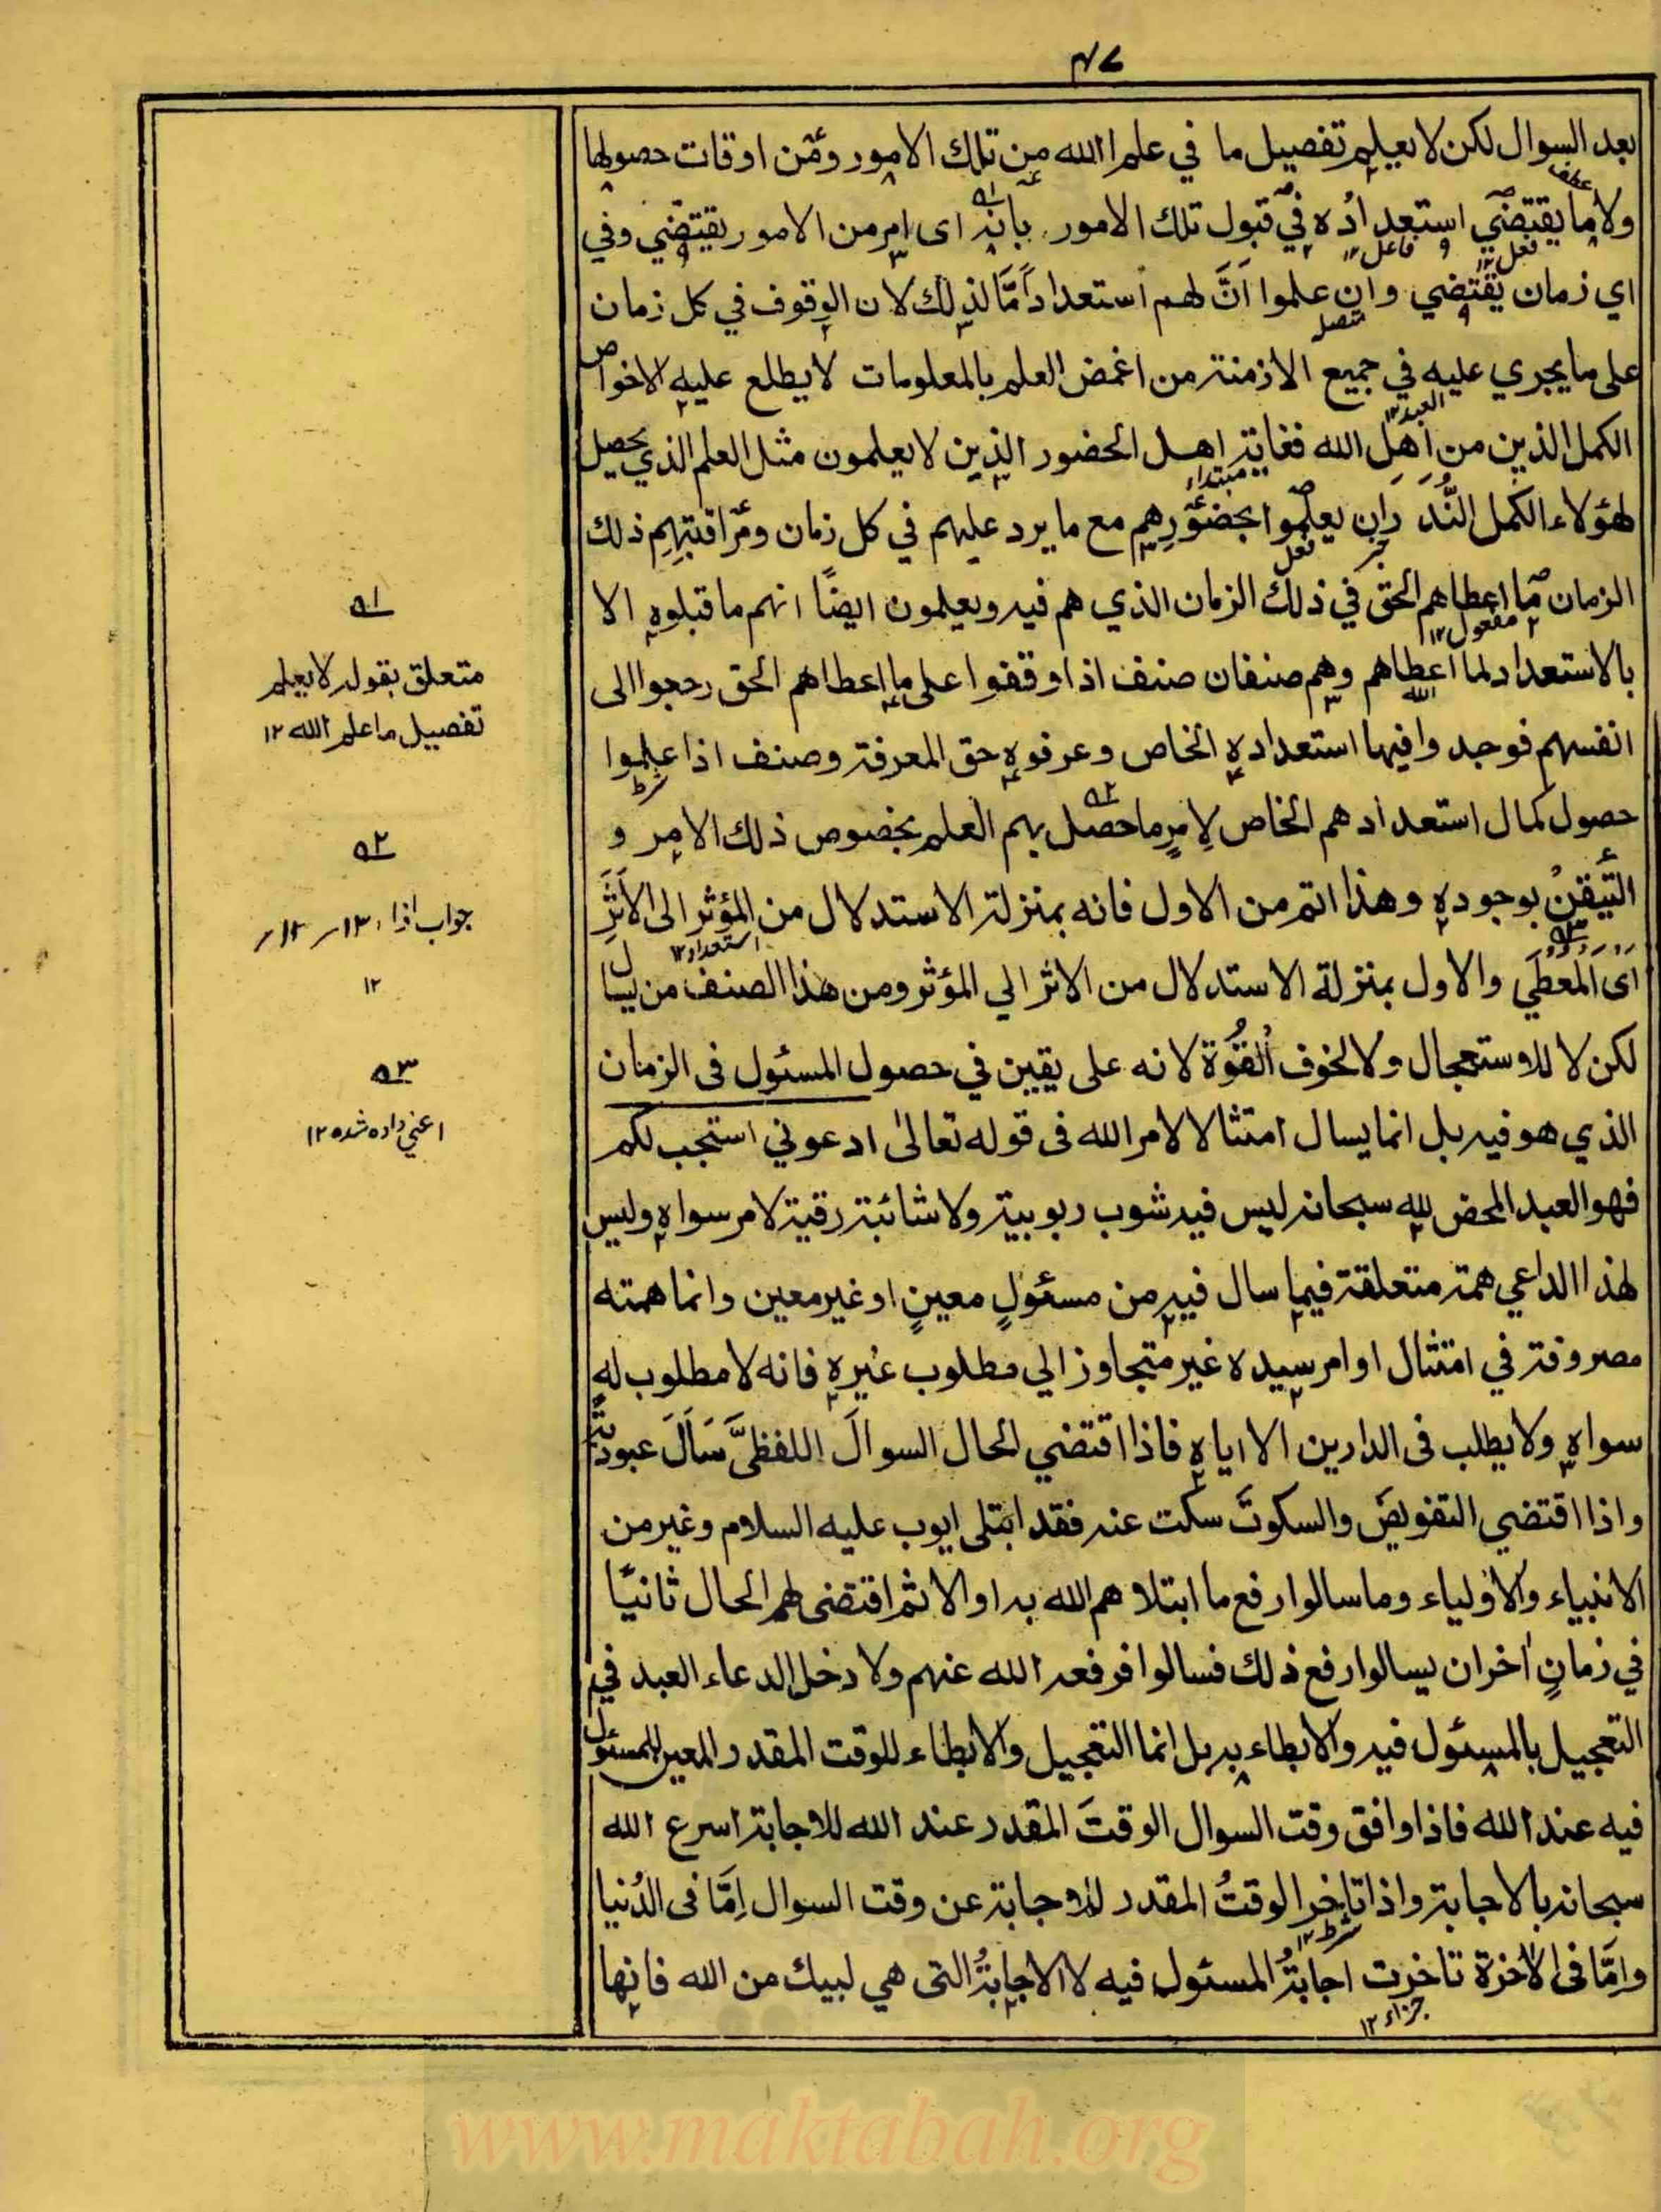 ٤٧
بعد السوال لكن لا يعلم تفصيل ما في علم الله من تلك الامور ومن اوقات حصولها
ولا ما يقتضي استعداده في قبول تلك الامور بانه اى امر من الامور يقتضي وفي
اي زمان يقتضي وان علموا اَنَّ لهم استعداداً مَّا لذلك لان الوقوف في كل زمان
على ما يجري عليه في جميع الازمنة من اغمض العلم بالمعلومات لا يطلع عليه الا خواص
الكمل الذين من اهل الله فغاية اهل الحضور الذين لا يعلمون مثل العلم الذي يحصل
لهؤلاء الكمل النُّدَّرَ ان يعلموا بحضورهم مع ما يرد عليهم في كل زمان ومراقبتهم ذلك
الزمان ما اعطاهم الحق في ذلك الزمان الذي هم فيه ويعلمون ايضًا انهم ما قبلوه الا
بالاستعداد لما اعطاهم وهم صنفان صنف اذا وقفوا على ما اعطاهم الحق رجعوا الى
انفسهم فوجدوا فيها استعداده الخاص وعرفوه حق المعرفة وصنف اذا علموا
حصول كمال استعدادهم الخاص لِامرٍ ما حصل بهم العلم بخصوص ذلك الامر و
التَّيَقنُ بوجوده وهذا اتم من الاول فانه بمنزلة الاستدلال من المؤثر الى الاَثَرِ
اَى المُعطَي والاول بمنزلة الاستدلال من الاثر الي المؤثر ومن هذا الصنف من يسال
لكن لا للاستعجال ولا لخوف القُوَّة لانه على يقين في حصول المسئول فى الزمان
الذي هو فيه بل انما يسال امتثالا لامر الله فى قوله تعالىٰ ادعوني استجب لكم
فهو العبد المحض لله سبحانه ليس فيه شوب ربوبية ولا شائبة رقية لامر سواه وليس
لهذا الداعي همة متعلقة فيما سال فيه من مسئولٍ معينٍ او غير معين وانما همته
مصروفة في امتثال اوامر سيده غير متجاوز الي مطلوب غيره فانه لا مطلوب له
سواه ولا يطلب فى الدارين الا اياه فاذا اقتضي الحال السوالَ اللفظىَّ سَاَلَ عبوديةً
واذا اقتضي التفويضَ والسكوتَ سكت عنه فقد ابتلى ايوب عليه السلام وغير من
الانبياء والاولياء وما سالوا رفع ما ابتلاهم الله به اوالا ثم اقتضى لهم الحال ثانيًا
في زمانٍ اٰخر ان يسالوا رفع ذلك فسالوا فرفعه الله عنهم ولا دخل لدعاء العبد في
التعجيل بالمسئول فيه والابطاء به بل انما التعجيل والابطاء للوقت المقدر المعين للمسئول
فيه عند الله فاذا وافق وقت السوال الوقتَ المقدر عند الله للاجابة اسرع الله
سبحانه بالاجابة واذا تاخر الوقتُ المقدر للاجابة عن وقت السوال اِمَّا فى الدُنيا
وامَّا فى الاٰخرة تاخرت اجابةُ المسئول فيه لا الاجابةُ التى هي لبيك من الله فانها
عطف
فعل ١٢
فاعل ١٢
متصل
العبد ١٢
مبتداء
خبر
فعل
مفعول ١٢
الله
شرط
استعداد ١٢
شرط ١٢
جزاء ١٢
٥١
متعلق بقوله لا يعلم
تفصيل ما علم الله ١٢
٥٢
جواب اذا
١٢
٥٣
اعني داده شده ١٢
www.maktabah.org